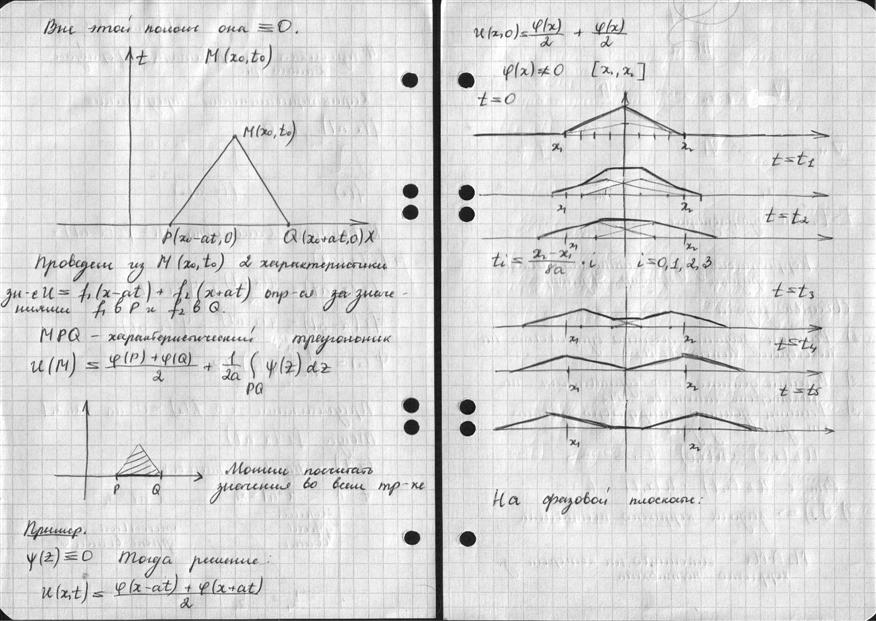 Вне этой полосы она ≡ 0.
t
M(x₀, t₀)
M(x₀, t₀)
P(x₀-at, 0) Q(x₀+at, 0) X
Проведем из M(x₀, t₀) 2 характеристики
зн-е U = f₁(x-at) + f₂(x+at) опр-ся за значе-
ниями f₁ в P и f₂ в Q.
MPQ - характеристический треугольник
U(M) = (φ(P)+φ(Q))/2 + 1/2a ∫PQ ψ(z) dz
P Q
Можем посчитать
значения во всем тр-ке
Пример.
ψ(z) ≡ 0 Тогда решение:
U(x,t) = (φ(x-at) + φ(x+at))/2
U(x,0) = φ(x)/2 + φ(x)/2
φ(x) ≠ 0 [x₁, x₂]
t=0
x₁ x₂
t=t₁
x₁ x₂
t=t₂
x₁ x₂
tᵢ = (x₂-x₁)/8a · i i=0,1,2,3
t=t₃
x₁ x₂
t=t₄
x₁ x₂
t=t₅
x₁ x₂
На фазовой плоскости: